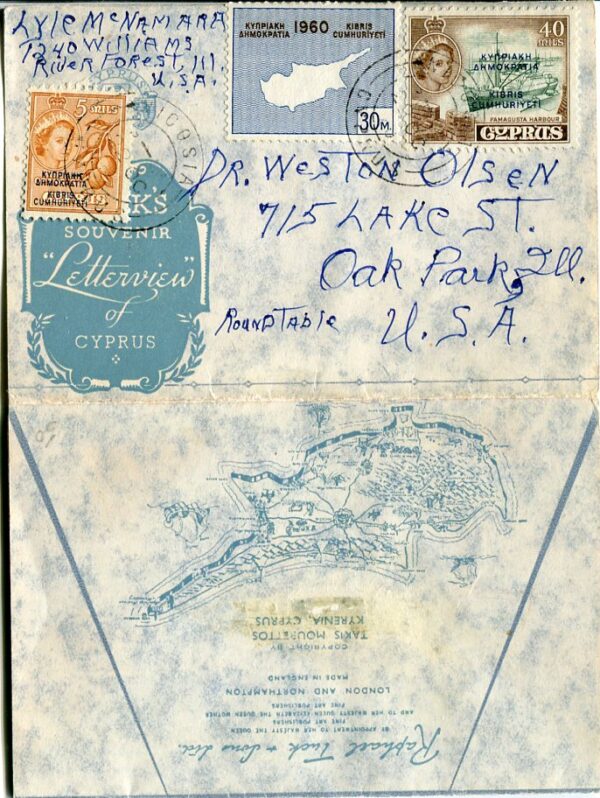 Lyle McNamara
1240 Williams
River Forest, Ill.
U.S.A.
ΚΥΠΡΙΑΚΗ 1960 KIBRIS
ΔΗΜΟΚΡΑΤΙΑ CUMHURİYETİ
30M.
40
MILS
ΚΥΠΡΙΑΚΗ
ΔΗΜΟΚΡΑΤΙΑ
KIBRIS
CUMHURİYETİ
FAMAGUSTA HARBOUR
CYPRUS
5 MILS
ΚΥΠΡΙΑΚΗ
ΔΗΜΟΚΡΑΤΙΑ
KIBRIS
CUMHURİYETİ
NICOSIA
SOUVENIR
"Letterview"
of
CYPRUS
Dr. Weston Olsen
715 Lake St.
Oak Park, Ill.
Roundtable
U.S.A.
COPYRIGHT BY
TAKIS MOURETTOS
KYRENIA, CYPRUS
Raphael Tuck & Sons Ltd.
BY APPOINTMENT TO HER MAJESTY THE QUEEN
FINE ART PUBLISHERS
AND TO HER MAJESTY QUEEN ELIZABETH THE QUEEN MOTHER
FINE ART PUBLISHERS
LONDON AND NORTHAMPTON
MADE IN ENGLAND